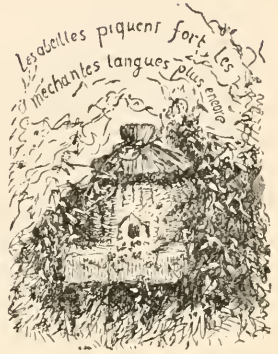 Les abeilles piquent fort les
méchantes langues plus encore